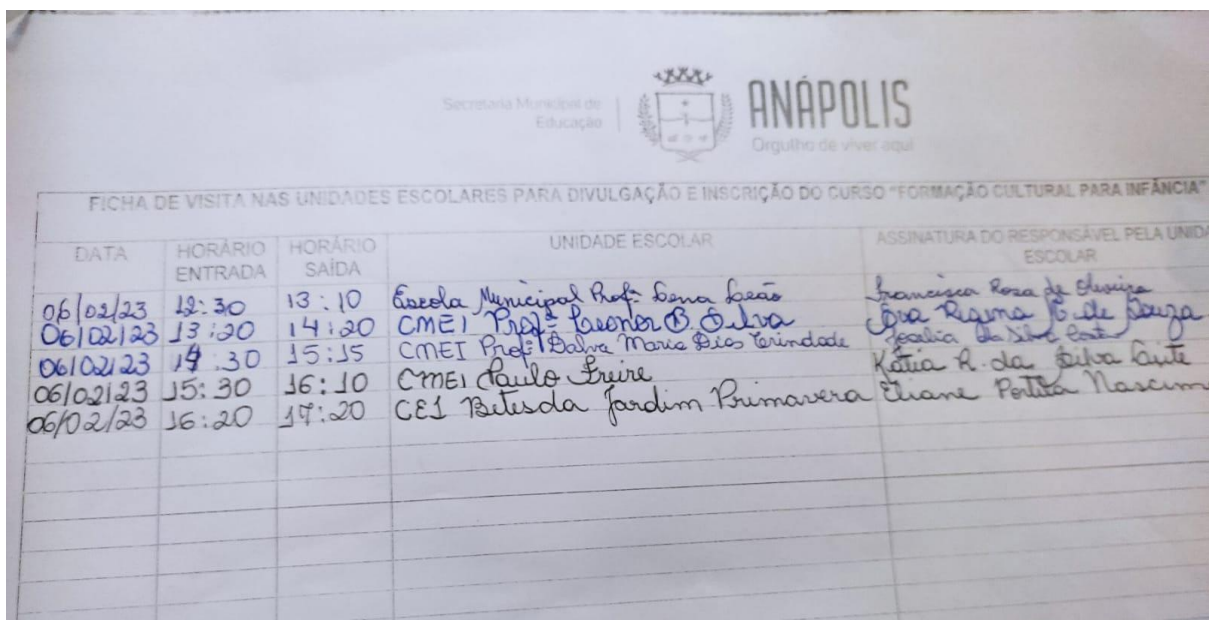 Secretaria Municipal de
Educação
ANÁPOLIS
Orgulho de viver aqui
FICHA DE VISITA NAS UNIDADES ESCOLARES PARA DIVULGAÇÃO E INSCRIÇÃO DO CURSO "FORMAÇÃO CULTURAL PARA INFÂNCIA"
DATA HORÁRIO ENTRADA HORÁRIO SAÍDA UNIDADE ESCOLAR ASSINATURA DO RESPONSÁVEL PELA UNIDA ESCOLAR
06/02/23 12:30 13:10 Escola Municipal Profª Lena Leão Francisca Rosa de Oliveira
06/02/23 13:20 14:20 CMEI Profª Leonor B. Silva Regina de Souza
06/02/23 14:30 15:15 CMEI Profª Dalva Maria Dias Trindade da Silva Costa
06/02/23 15:30 16:10 CMEI Paulo Freire Kátia R. da Silva Leite
06/02/23 16:20 17:20 CEI Betesda Jardim Primavera Eliane Nascim